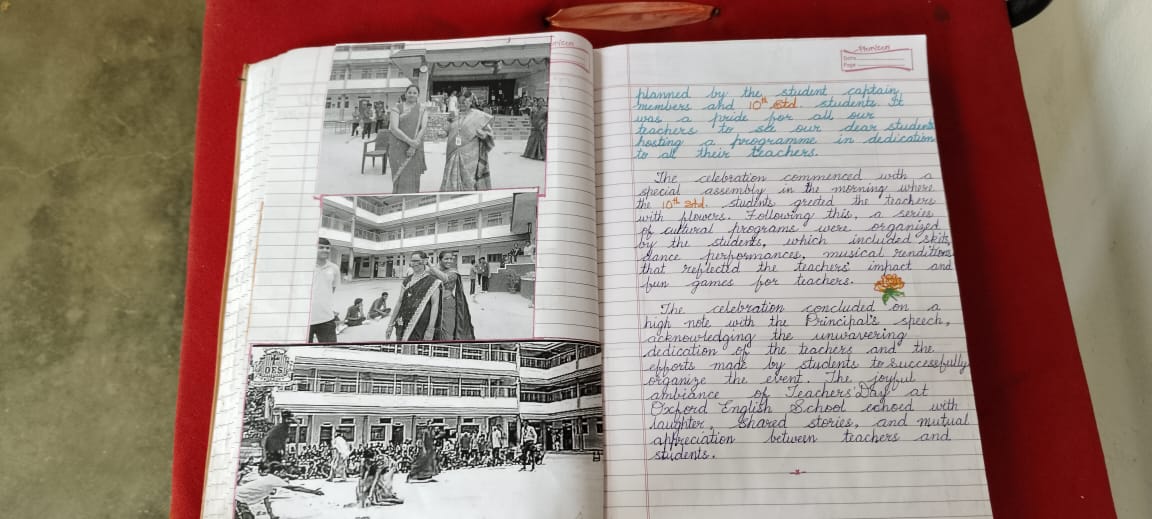 OES
Horizon
Date
Page
planned by the student captain,
members and 10th Std. students. It
was a pride for all our
teachers to see our dear students
hosting a programme in dedication
to all their teachers.
The celebration commenced with a
special assembly in the morning where
the 10th Std. students greeted the teachers
with flowers. Following this, a series
of cultural programs were organized
by the students, which included skits,
dance performances, musical renditions
that reflected the teachers' impact and
fun games for teachers.
The celebration concluded on a
high note with the Principal's speech,
acknowledging the unwavering
dedication of the teachers and the
efforts made by students to successfully
organize the event. The joyful
ambiance of Teachers' Day at
Oxford English School echoed with
laughter, shared stories, and mutual
appreciation between teachers and
students.